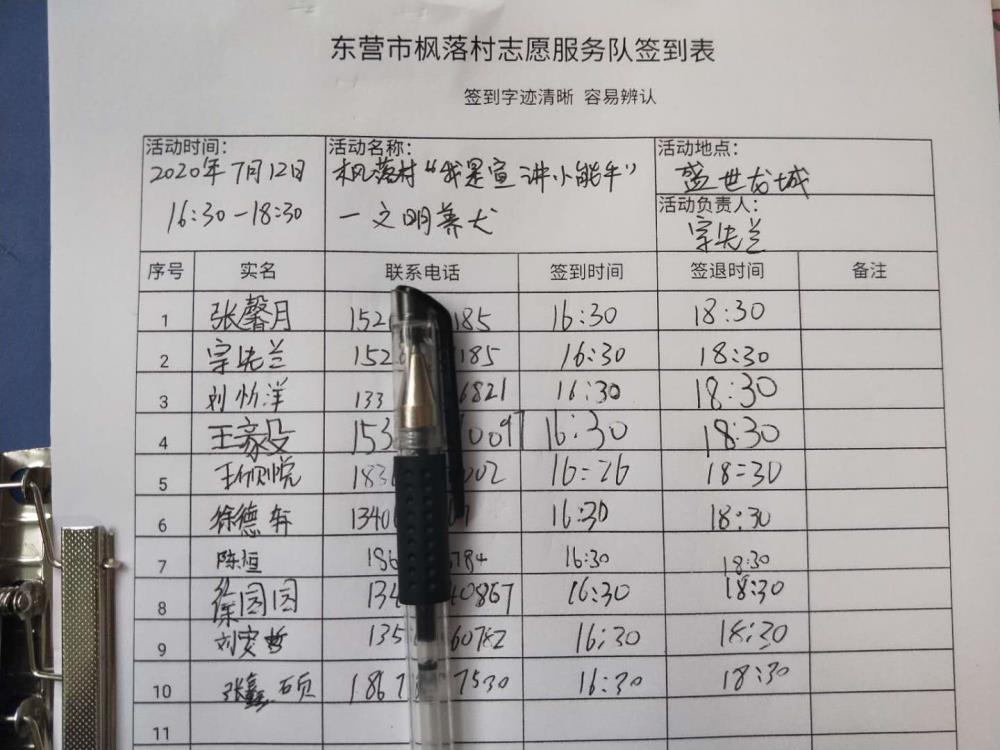 东营市枫落村志愿服务队签到表
签到字迹清晰 容易辨认
活动时间：
2020年7月12日
16:30-18:30
活动名称：
枫落村“我是宣讲小能手”
一文明养犬
活动地点：
盛世龙城
活动负责人：
宗先兰
序号 实名 联系电话 签到时间 签退时间 备注
1 张馨月 152 185 16:30 18:30
2 宗先兰 152 185 16:30 18:30
3 刘怡洋 133 6821 16:30 18:30
4 王豪 153 009 16:30 18:30
5 王 悦 183 002 16:26 18:30
6 徐德 1340 16:30 18:30
7 陈恒 186 784 16:30 18:30
8 徐园园 134 40867 16:30 18:30
9 刘安哲 135 60782 16:30 18:30
10 张鑫 1867 7530 16:30 18:30
11